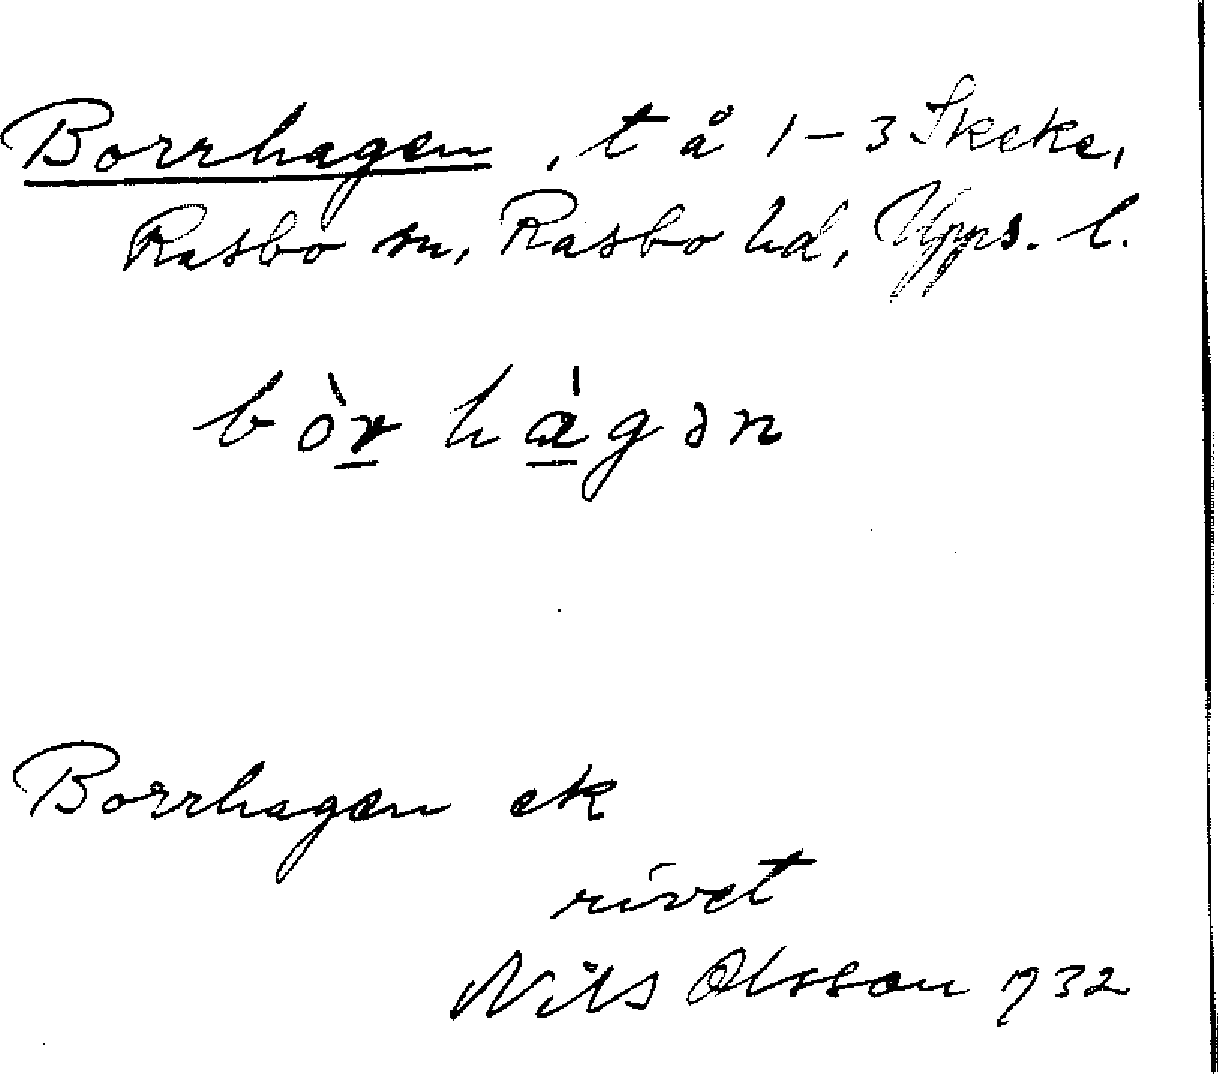 Borrhagen, t å 1-3 Skeke,
Rasbo sn, Rasbo hd, Upps. l.
bòr hágən
Borrhagen ek
rivet
Nils Olsson 1932